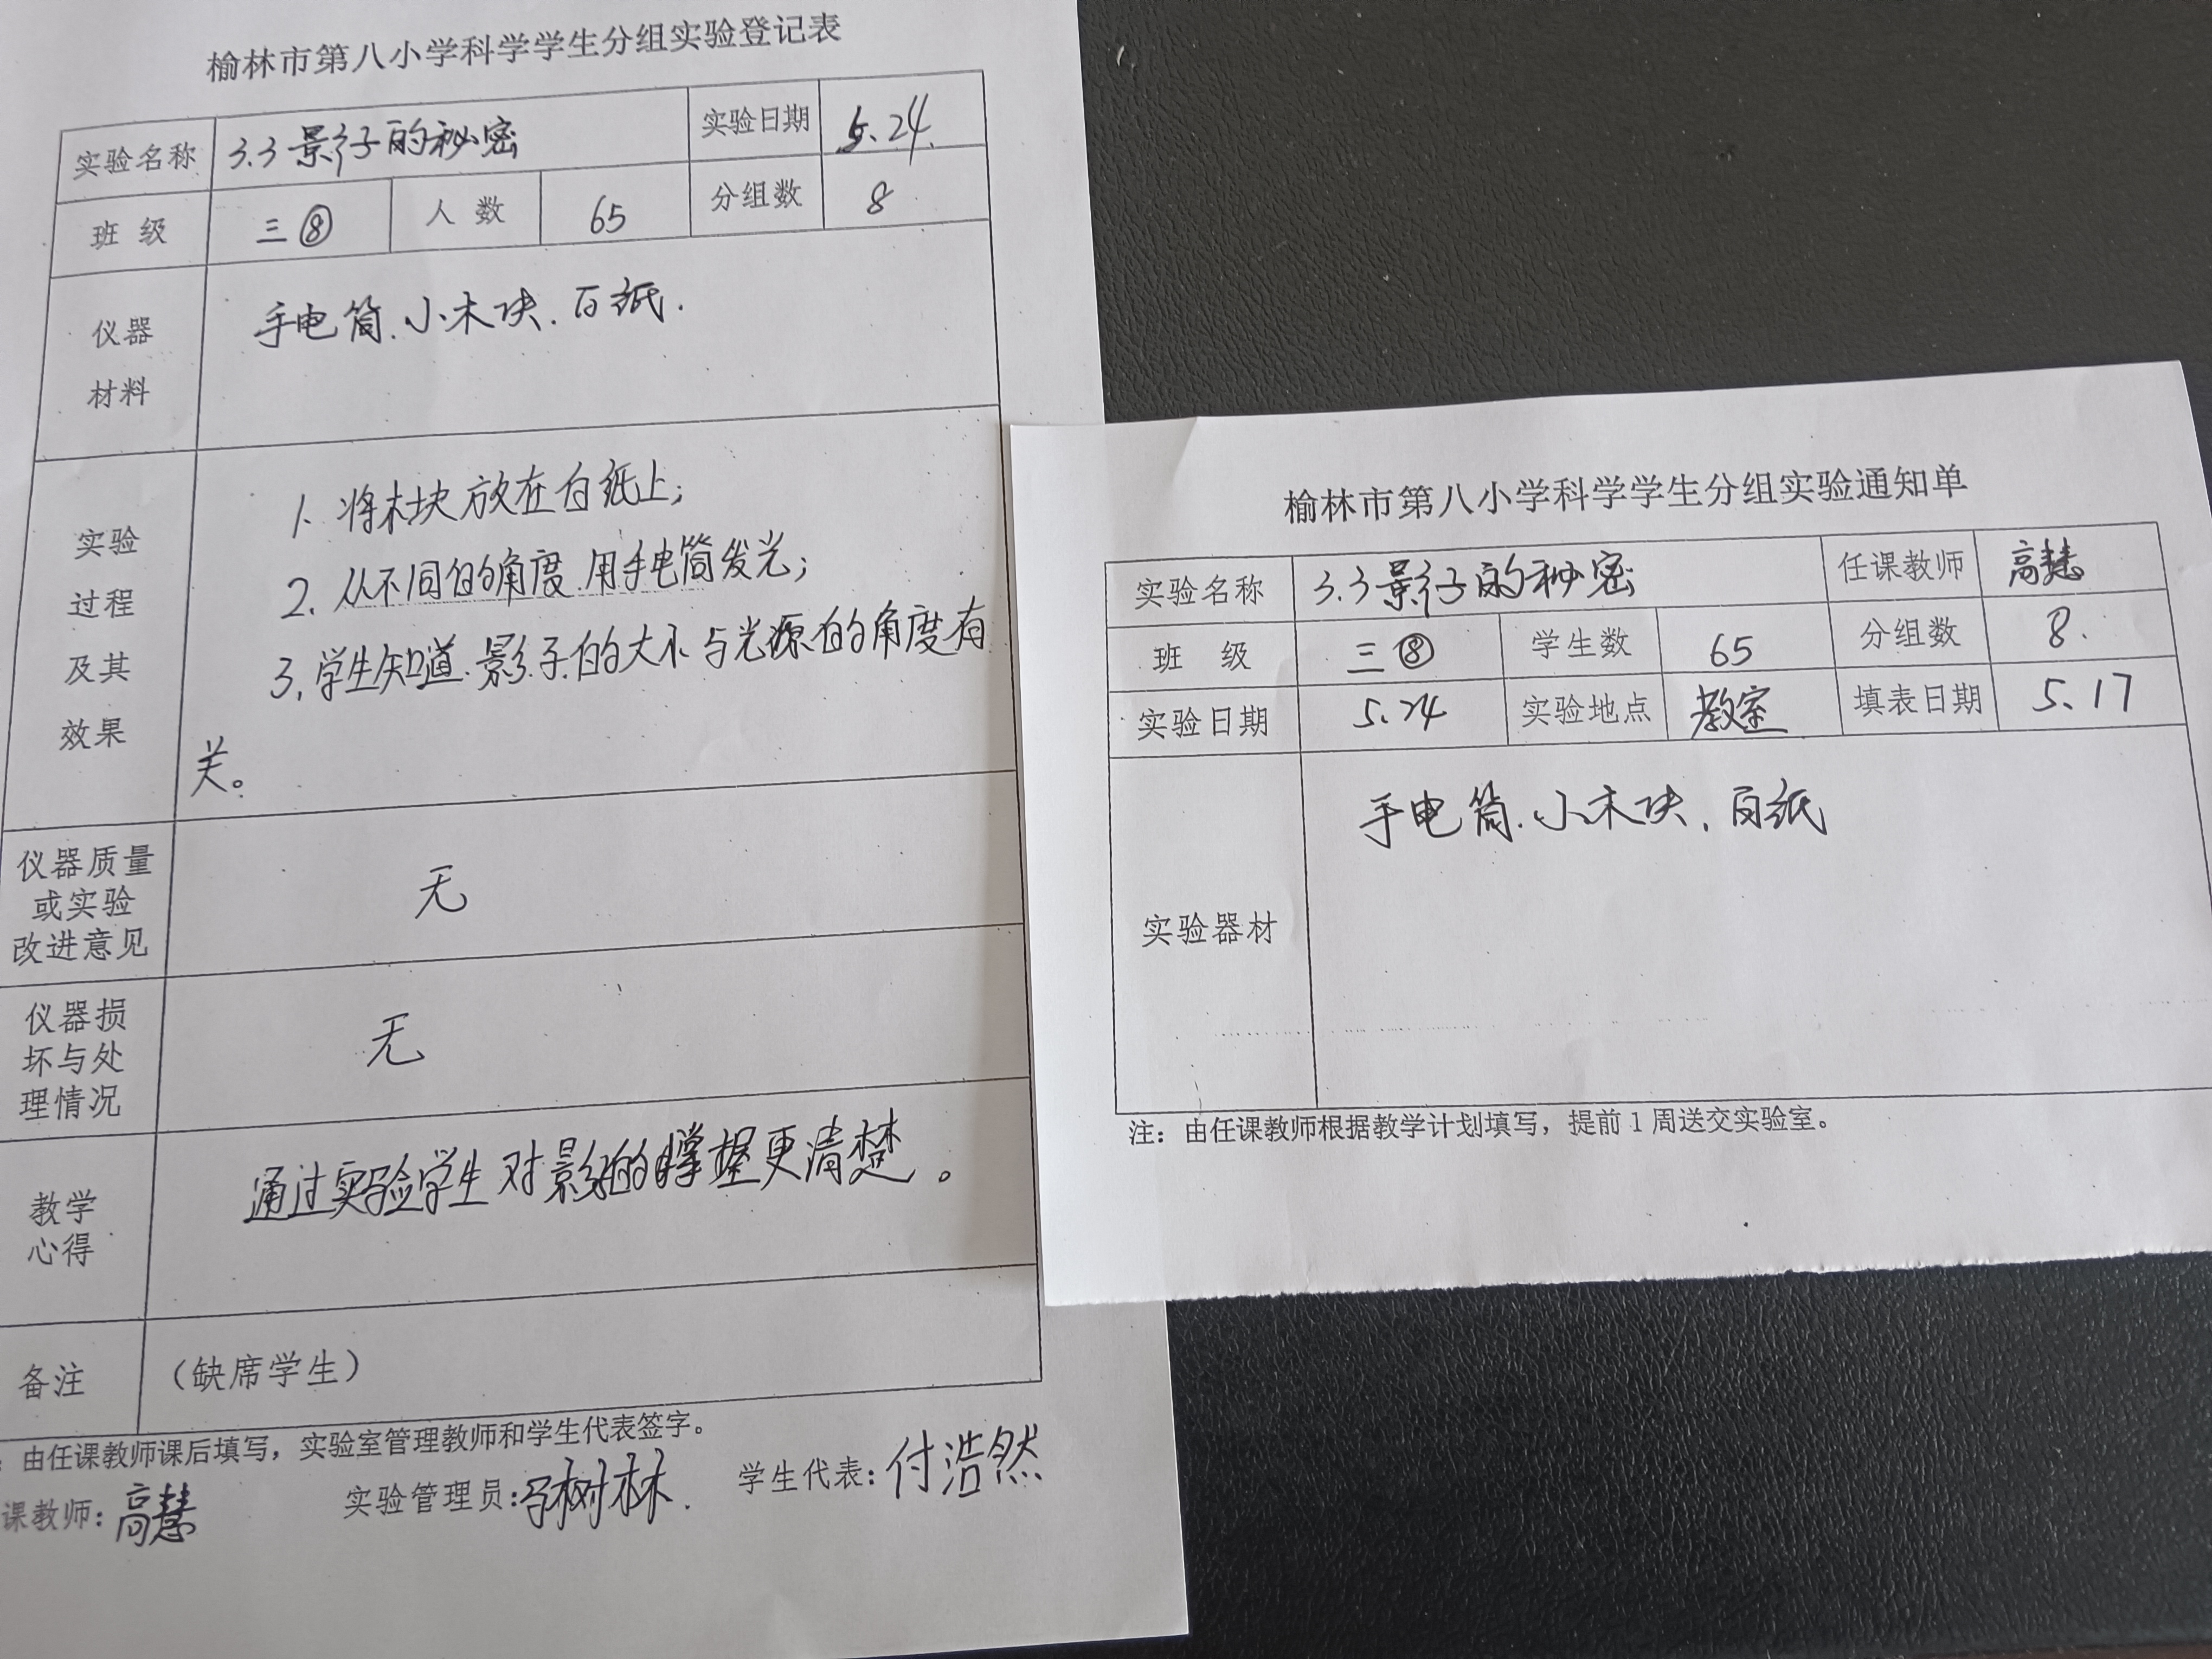 榆林市第八小学科学学生分组实验登记表
实验名称 3.3影子的秘密 实验日期 5.24.
班 级 三⑧ 人 数 65 分组数 8
仪器
材料
手电筒.小木块.白纸.
实验
过程
及其
效果
1、将木块放在白纸上;
2. 从不同的角度用手电筒发光;
3,学生知道.影子的大小与光源的角度有
关。
仪器质量
或实验
改进意见
无
仪器损
坏与处
理情况
无
教学
心得
通过实验学生对影子的掌握更清楚。
备注 (缺席学生)
:由任课教师课后填写,实验室管理教师和学生代表签字。
课教师:高慧 实验管理员: 树林. 学生代表:付浩然
榆林市第八小学科学学生分组实验通知单
实验名称 3.3影子的秘密 任课教师 高慧
班 级 三⑧ 学生数 65 分组数 8.
实验日期 5.24 实验地点 教室 填表日期 5.17
实验器材
手电筒.小木块.白纸
注:由任课教师根据教学计划填写,提前1周送交实验室。